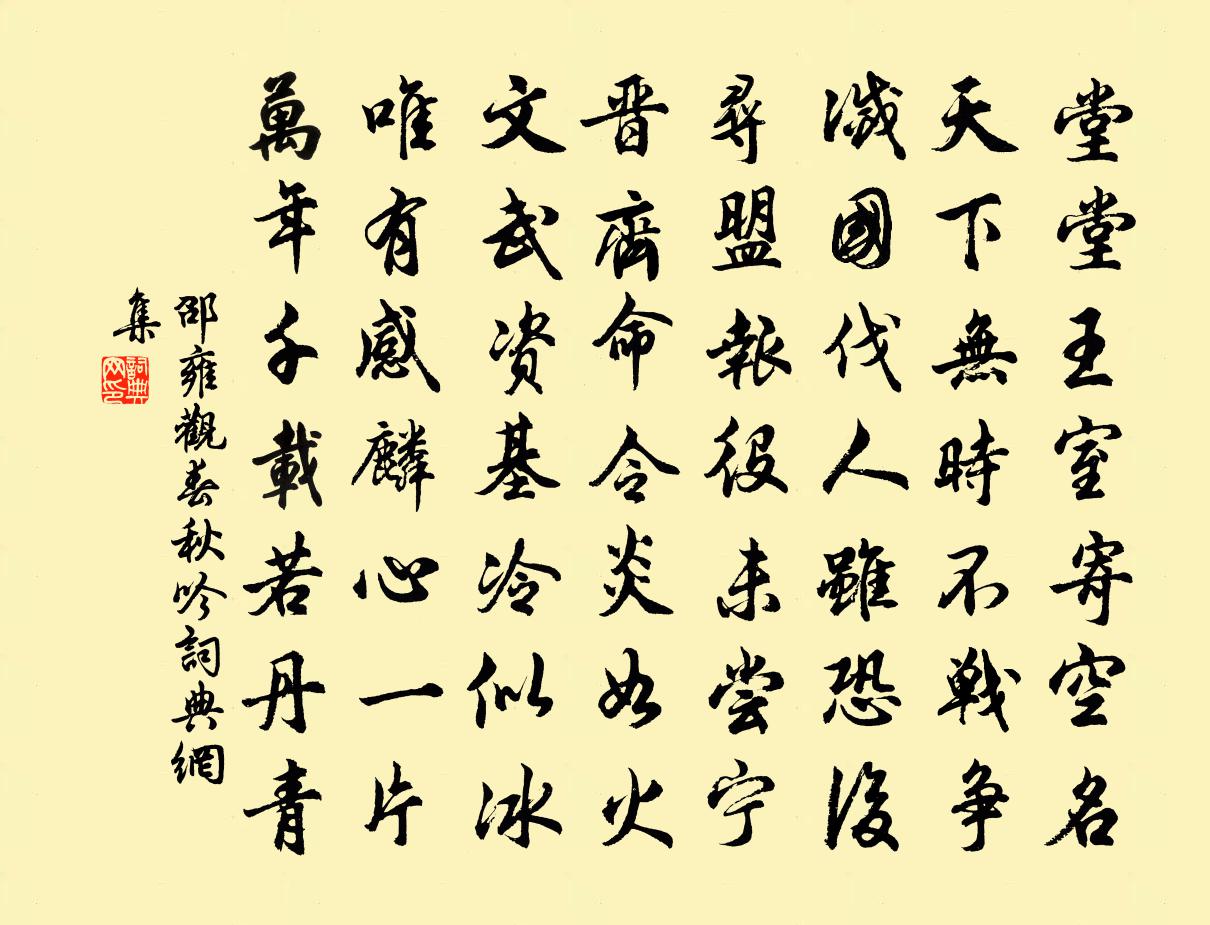 堂堂王室寄空名
天下無時不戰爭
滅國伐人雖恐後
尋盟報役未嘗宁
晉齊命令炎如火
文武資基冷似冰
唯有感麟心一片
萬年千載若丹青
邵雍觀春秋吟詞典網
集
詞典
网印